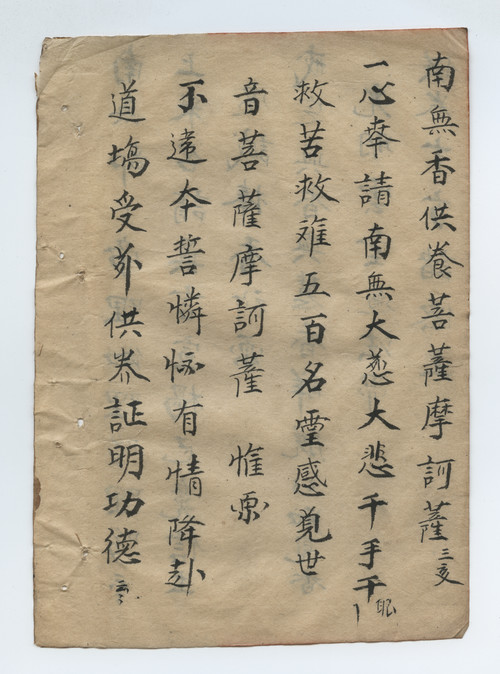 南無香供養菩薩摩訶薩三
一心奉請南無大慈大悲千手千眼
救苦救难五百名霊感覌世
音菩薩摩訶薩 惟愿
不違夲誓憐愍有情降赴
道塲受供养証明功德